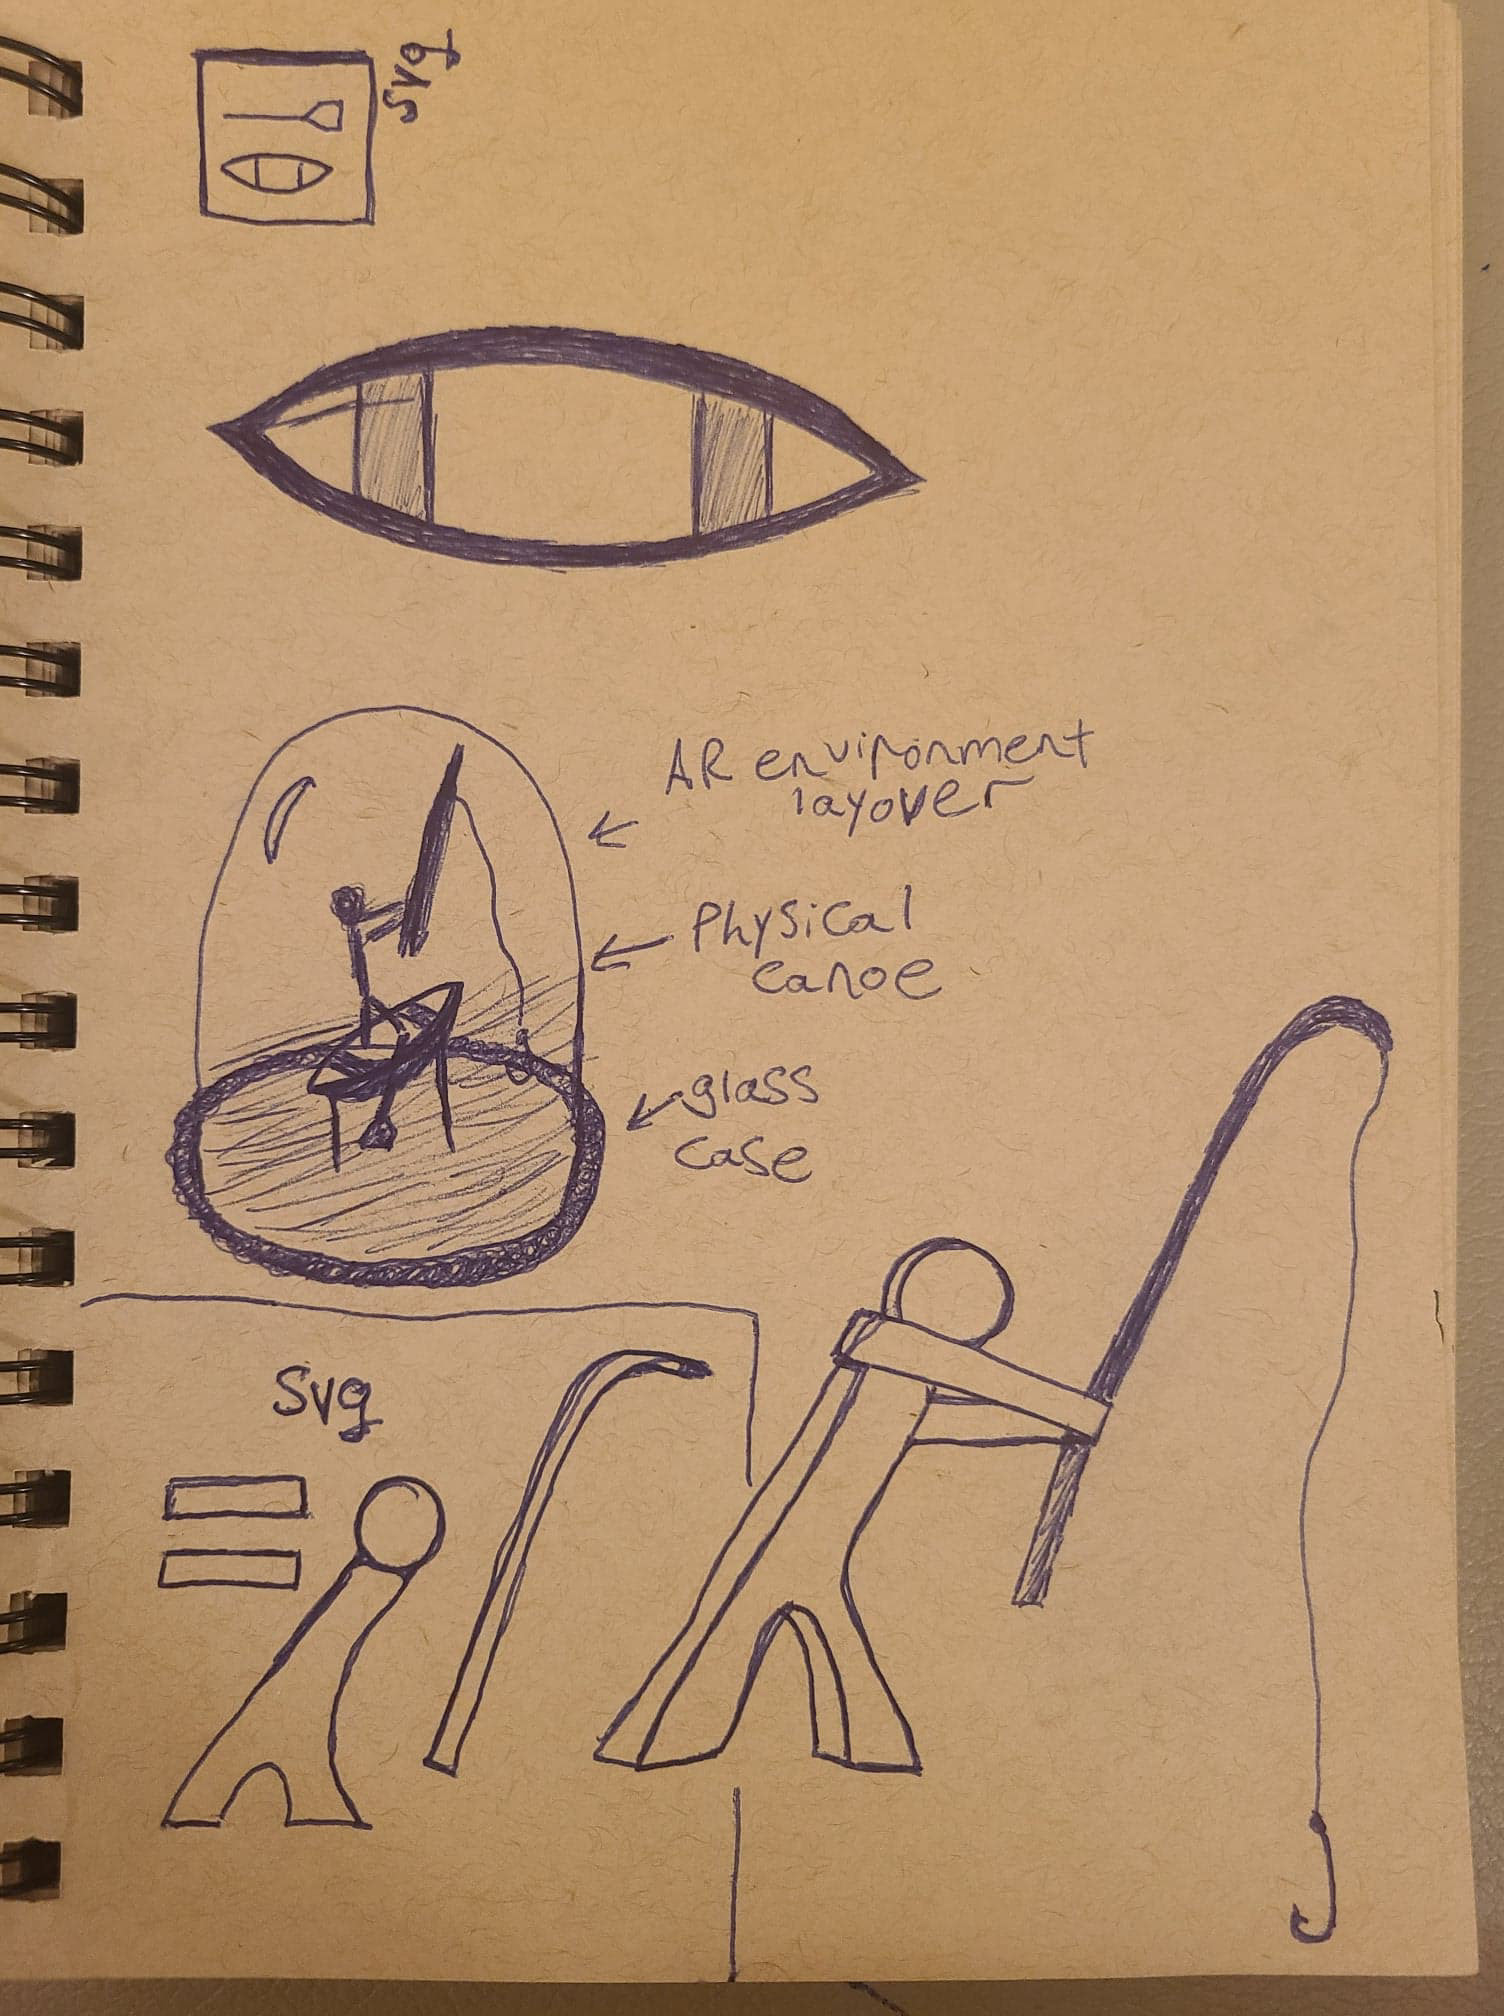 Svg
AR environment
layover
Physical
canoe
glass
case
Svg